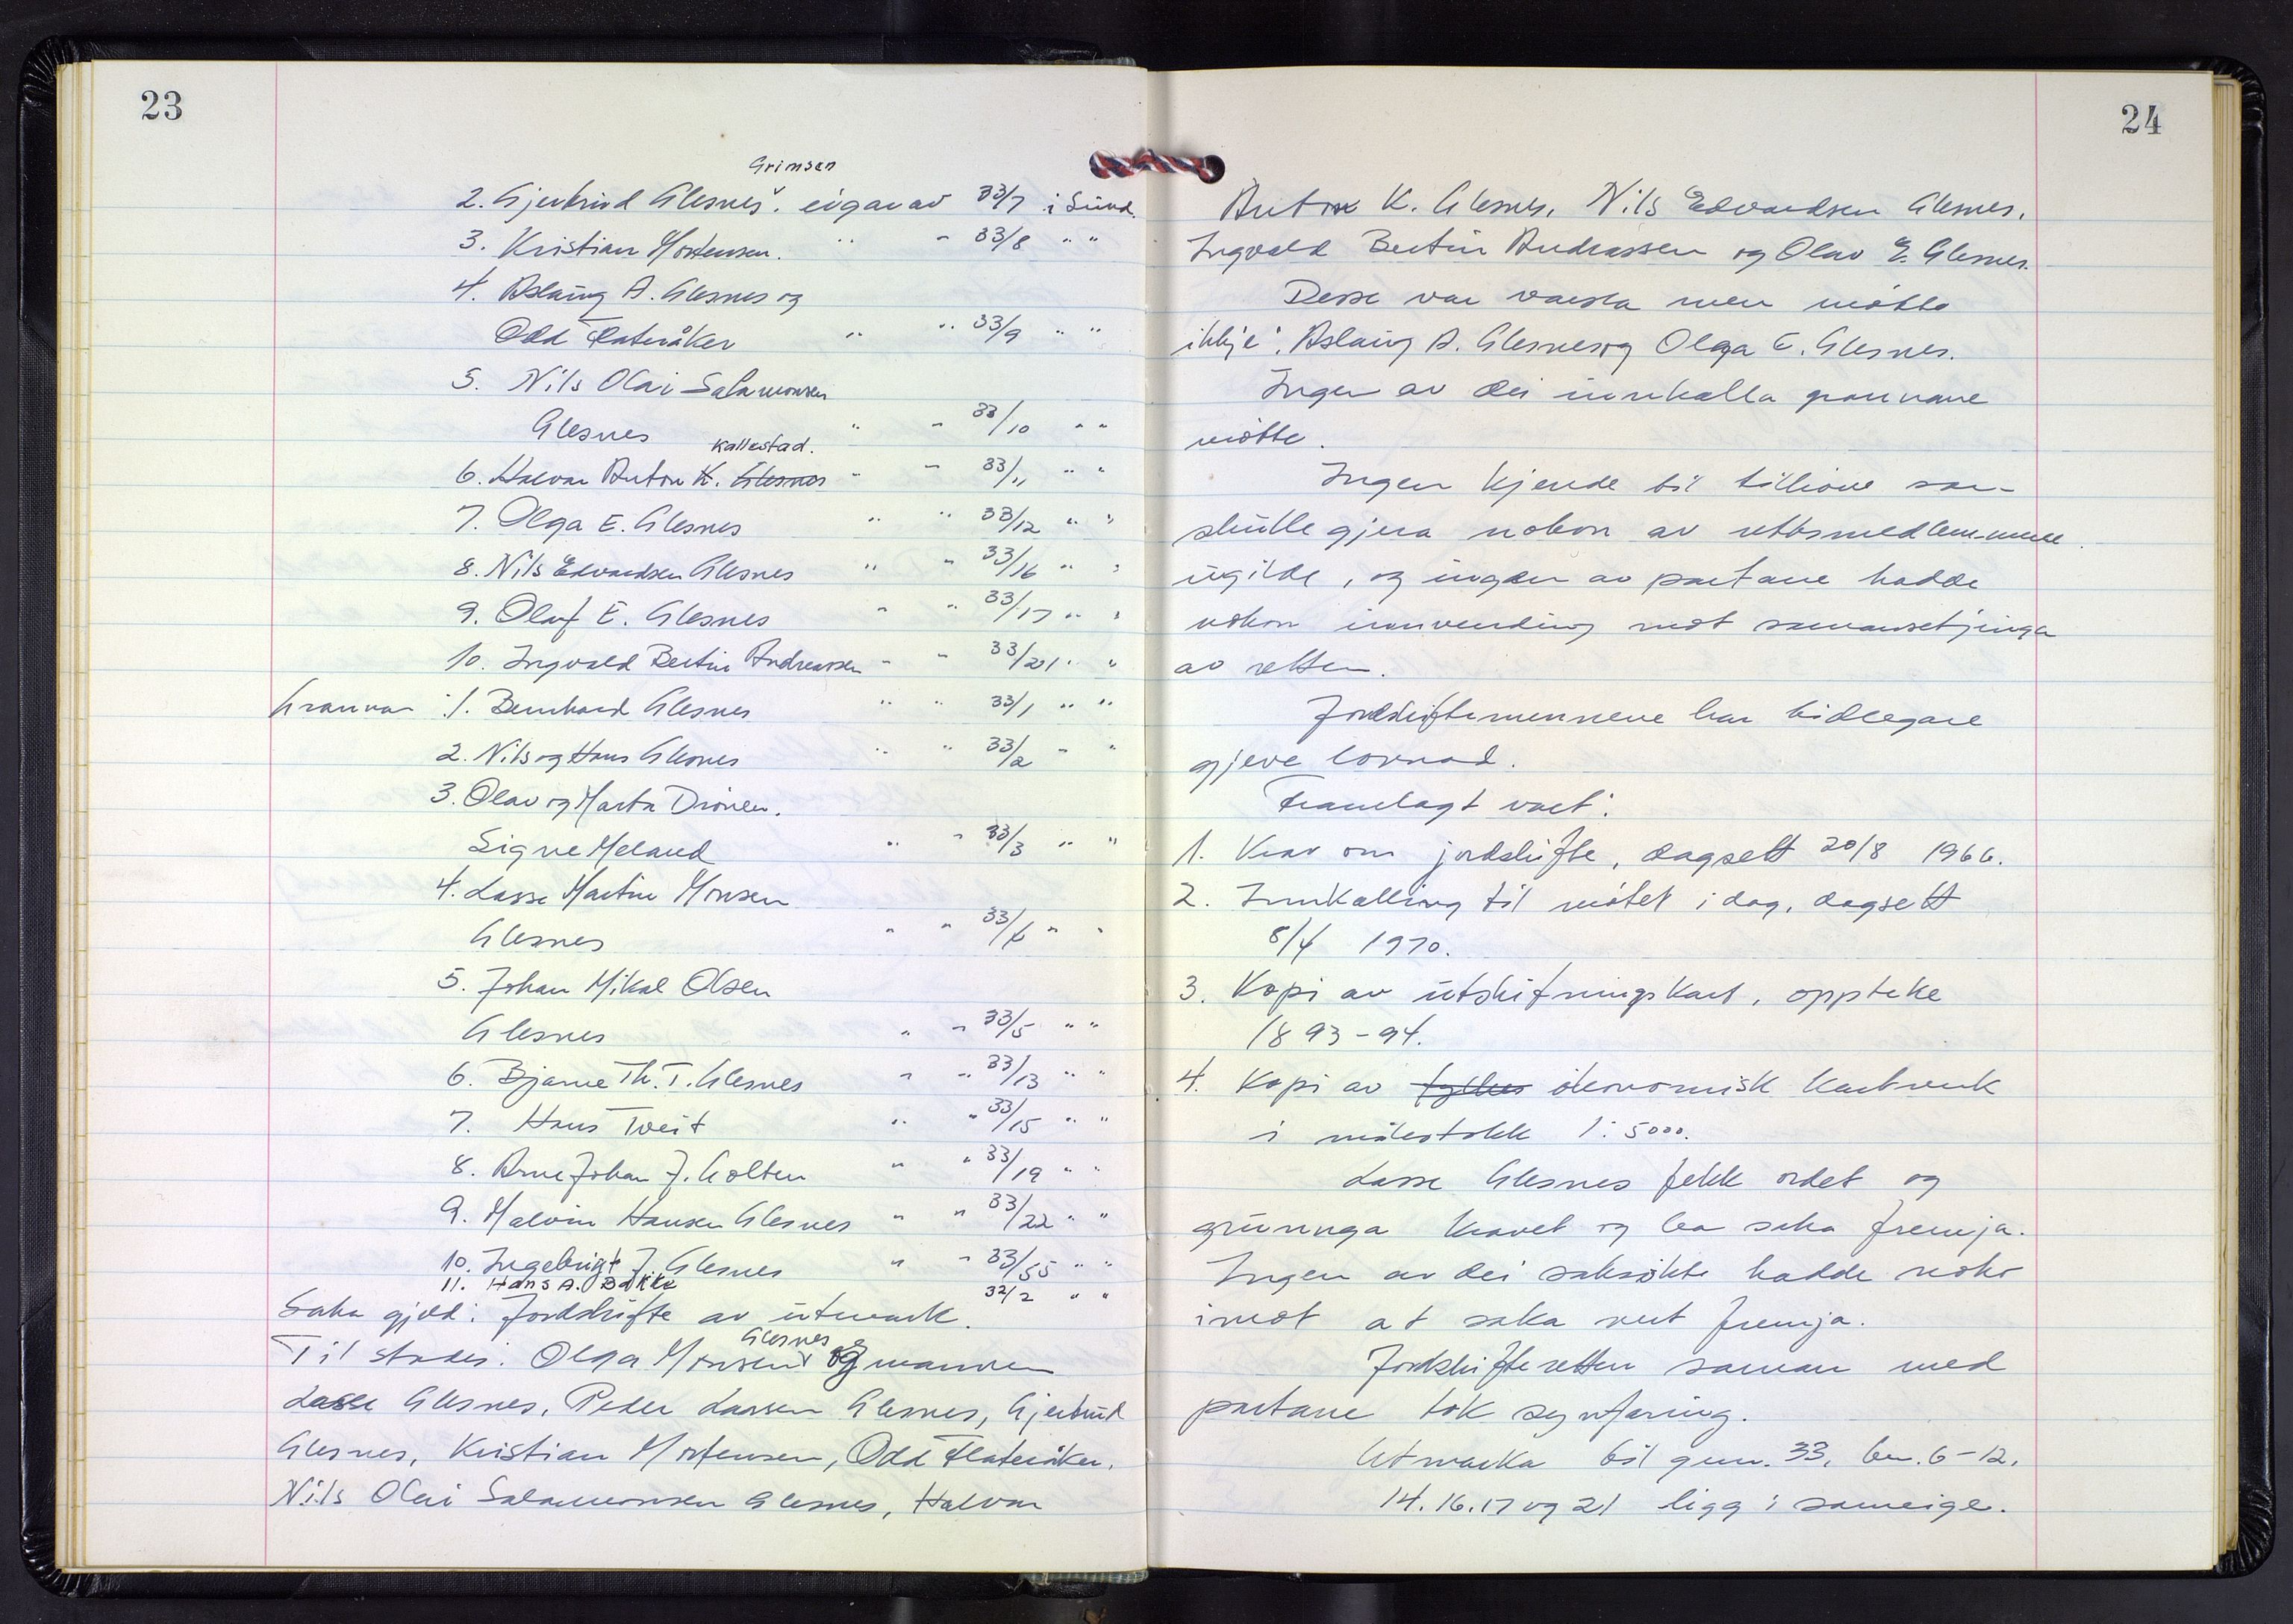 23
Grimsen
2. Gjertrud Glesnes ˇ. eigar av 33/7 i Sund.
3. Kristian Mortensen. " " 33/8 " "
4. Aslaug A. Glesnes og
Odd Flateråker " " 33/9 " "
5. Nils Olai Salamonsen
Glesnes " " 33/10 " "
Kallestad.
6. Halvar Anton K. Glesnes " " 33/11 " "
7. Olga E. Glesnes " " 33/12 " "
8. Nils Edvardsen Glesnes " " 33/16 " "
9. Olaf E. Glesnes " " 33/17 " "
10. Ingvald Bertin Andreassen " " 33/21 " "
Grannar: 1. Bernhard Glesnes " " 33/1 " "
2. Nils og Hans Glesnes " " 33/2 " "
3. Olav og Marta Drönen.
Signe Meland " " 33/3 " "
4. Lasse Martin Monsen
Glesnes " " 33/4 " "
5. Johan Mikal Olsen
Glesnes " " 33/5 " "
6. Bjarne Th. T. Glesnes " " 33/13 " "
7. Hans Tveit " " 33/15 " "
8. Arne Johan J. Golten " " 33/19 " "
9. Malvin Hansen Glesnes " " 33/22 " "
10. Ingebrigt J. Glesnes " " 33/55 " "
11. Hans A. Bakke 32/2 " "
Saka gjeld: Jordskifte av utmark.
Glesnes
Til stades: Olga Monsen ˇ og mannen
Lasse Glesnes, Peder Larsen Glesnes, Gjertrud
Glesnes, Kristian Mortensen, Odd Flateråker,
Nils Olai Salamonsen Glesnes, Halvar
24
Anton K. Glesnes, Nils Edvardsen Glesnes,
Ingvald Bertin Andreassen og Olav E. Glesnes.
Desse var varsla men møtte
ikkje: Aslaug A. Glesnes og Olga E. Glesnes.
Ingen av dei innkalla grannane
møtte.
Ingen kjende til tilhøve som
skulle gjera nokon av rettsmedlemmene
ugilde, og ingen av partane hadde
nokon innvending mot samansetjinga
av retten.
Jordskiftemennene har tidlegare
gjeve lovnad.
Framlagt vart:
1. Krav om jordskifte, dagsett 20/8 1966.
2. Innkalling til møtet i dag, dagsett
8/4 1970.
3. Kopi av utskiftningskart, oppteke
1893-94.
4. Kopi av økonomisk kartverk
i målestokk 1:5000.
Lasse Glesnes fekk ordet og
grunnga kravet og ba saka fremja.
Ingen av dei saksøkte hadde noko
imot at saka vert fremja.
Jordskifteretten saman med
partane tok synfaring.
Utmarka til gnr. 33, bnr. 6-12,
14. 16. 17 og 21 ligg i sameige.